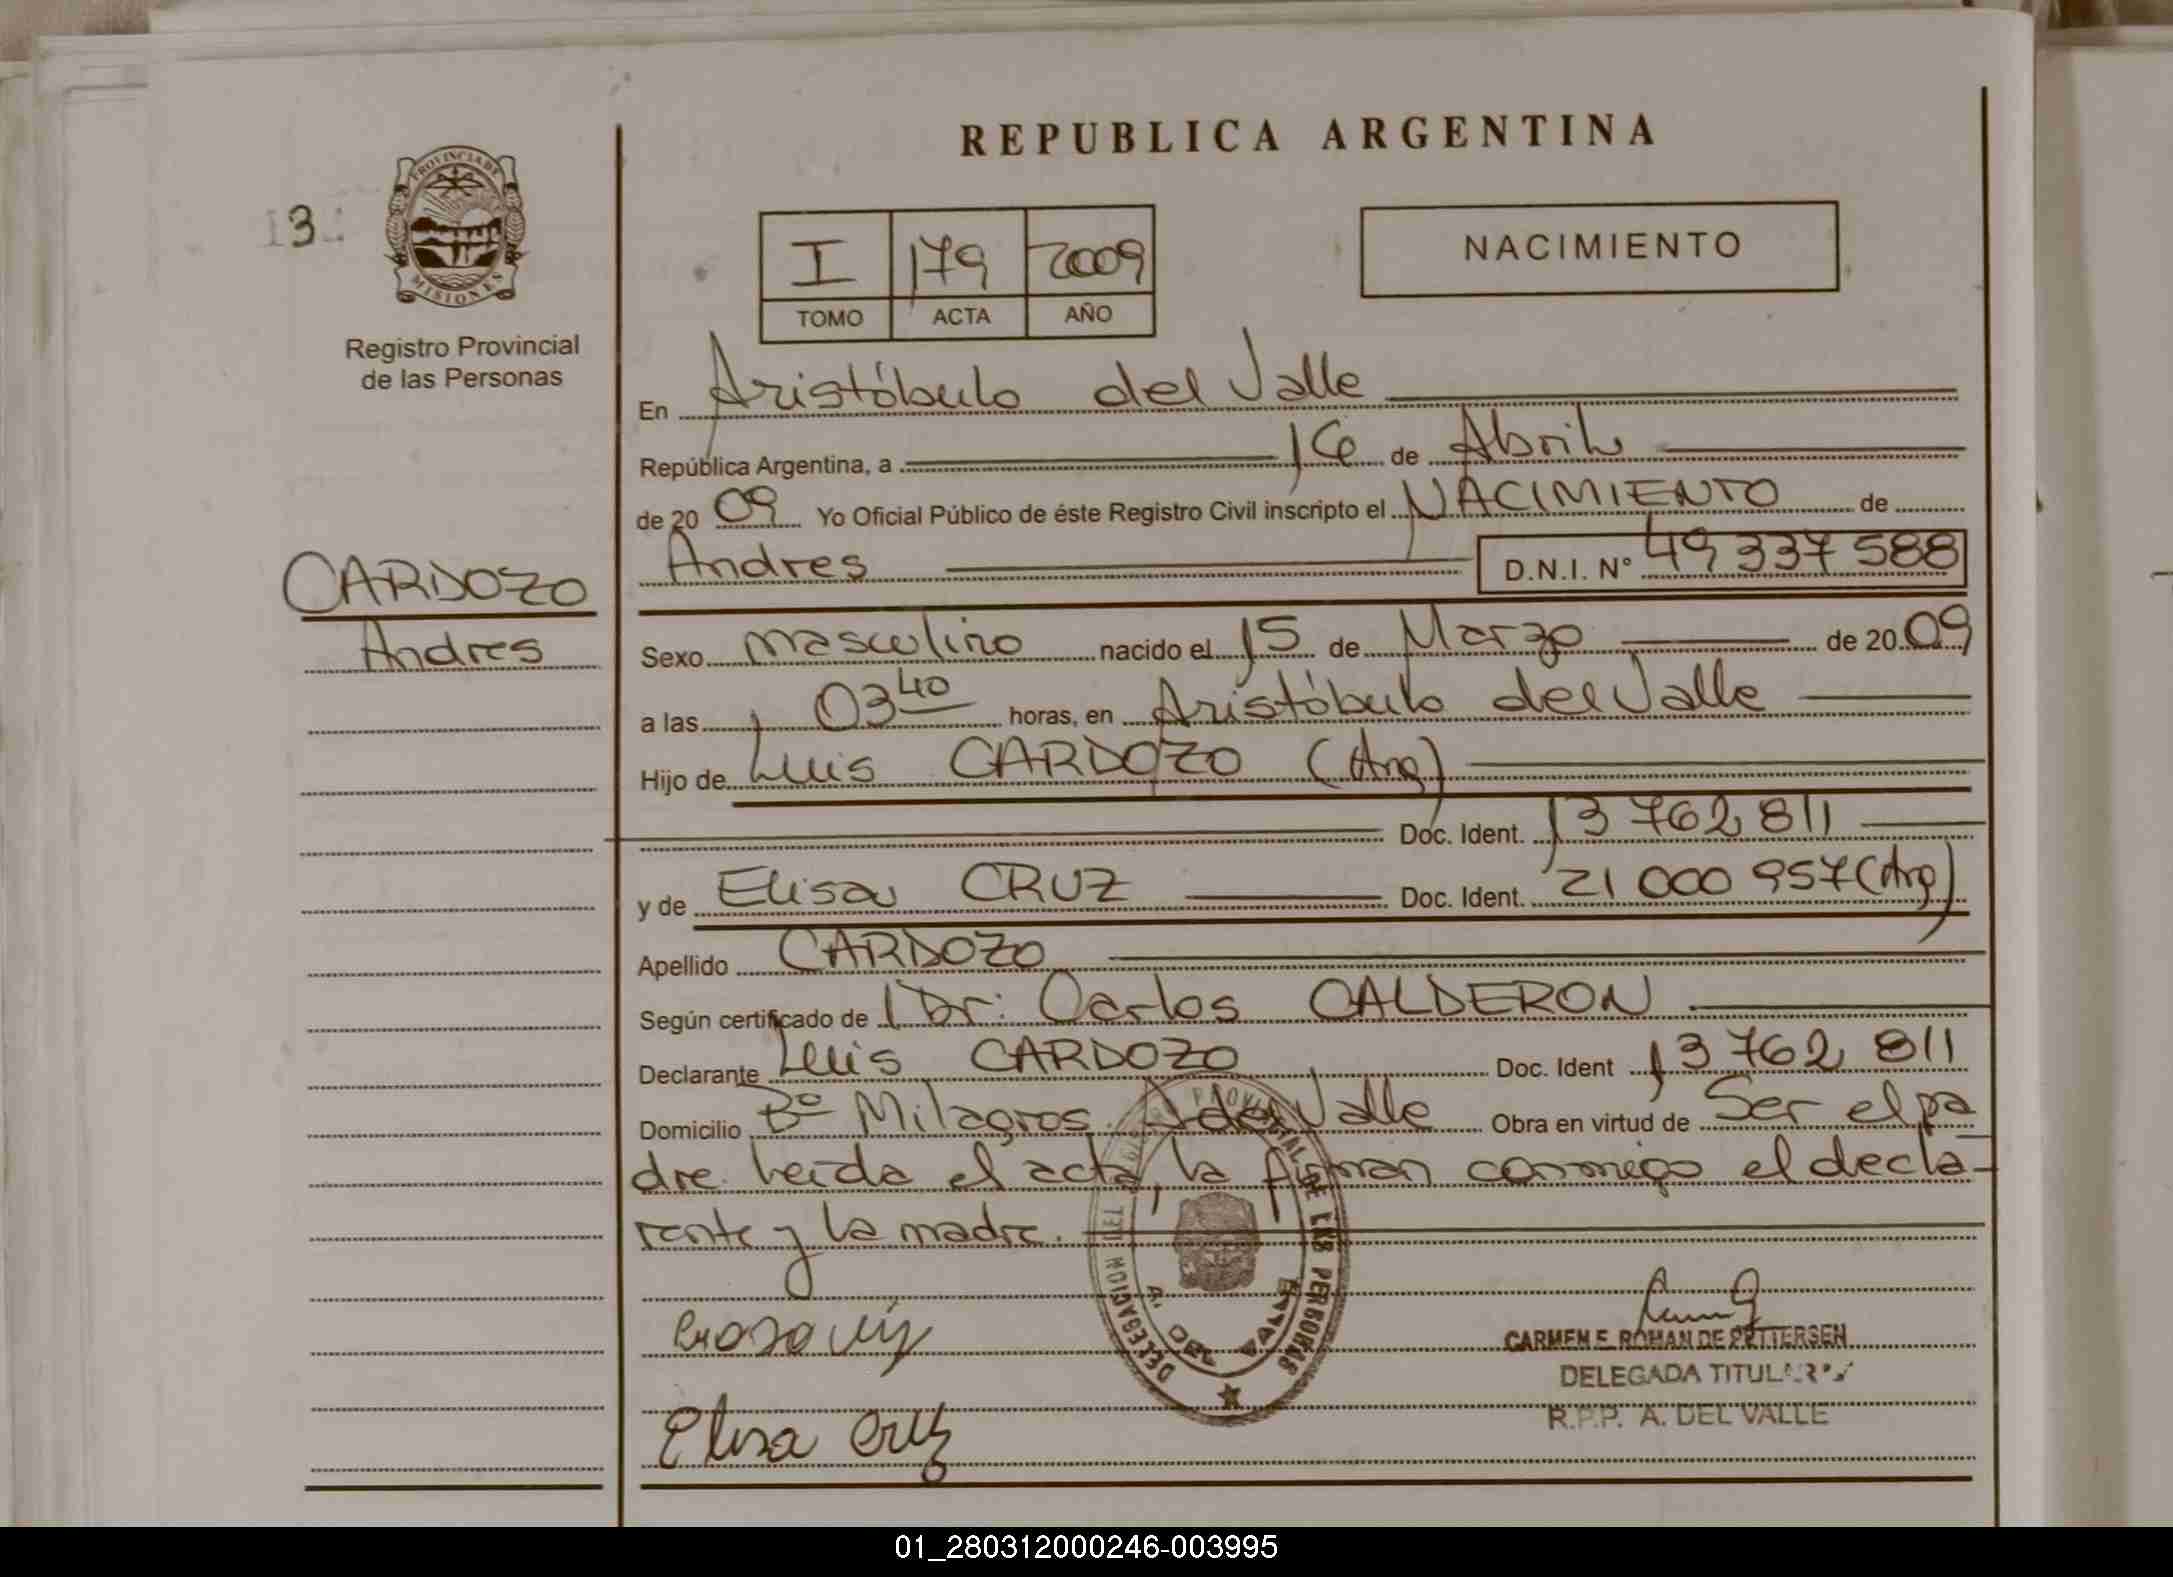 REPUBLICA ARGENTINA
PROVINCIA DE
MISIONES
13
Registro Provincial
de las Personas
I 179 2009
TOMO ACTA AÑO
NACIMIENTO
En Aristóbulo del Valle
República Argentina, a 16 de Abril
de 2009 Yo Oficial Público de éste Registro Civil inscripto el NACIMIENTO de
Andres D.N.I. N° 49 337 588
CARDOZO
Andres
Sexo masculino nacido el 15 de Marzo de 2009
a las 03 40 horas, en Aristóbulo del Valle
Hijo de Luis CARDOZO (Arg)
Doc. Ident. 13 762 811
y de Elisa CRUZ Doc. Ident. 21 000 957 (Arg)
Apellido CARDOZO
Según certificado de Dr: Carlos CALDERON
Declarante Luis CARDOZO Doc. Ident 13 762 811
Domicilio Bº Milagros. A del Valle Obra en virtud de Ser el pa
dre. Leída el acta, la firman conmigo el decla-
rante y la madre.
DELEGACION DEL REGISTRO PROVINCIAL DE LAS PERSONAS
A. DEL VALLE
Elisa Cruz
CARMEN E. ROMAN DE PETTERSEN
DELEGADA TITULAR
R.P.P. A. DEL VALLE
01_280312000246-003995